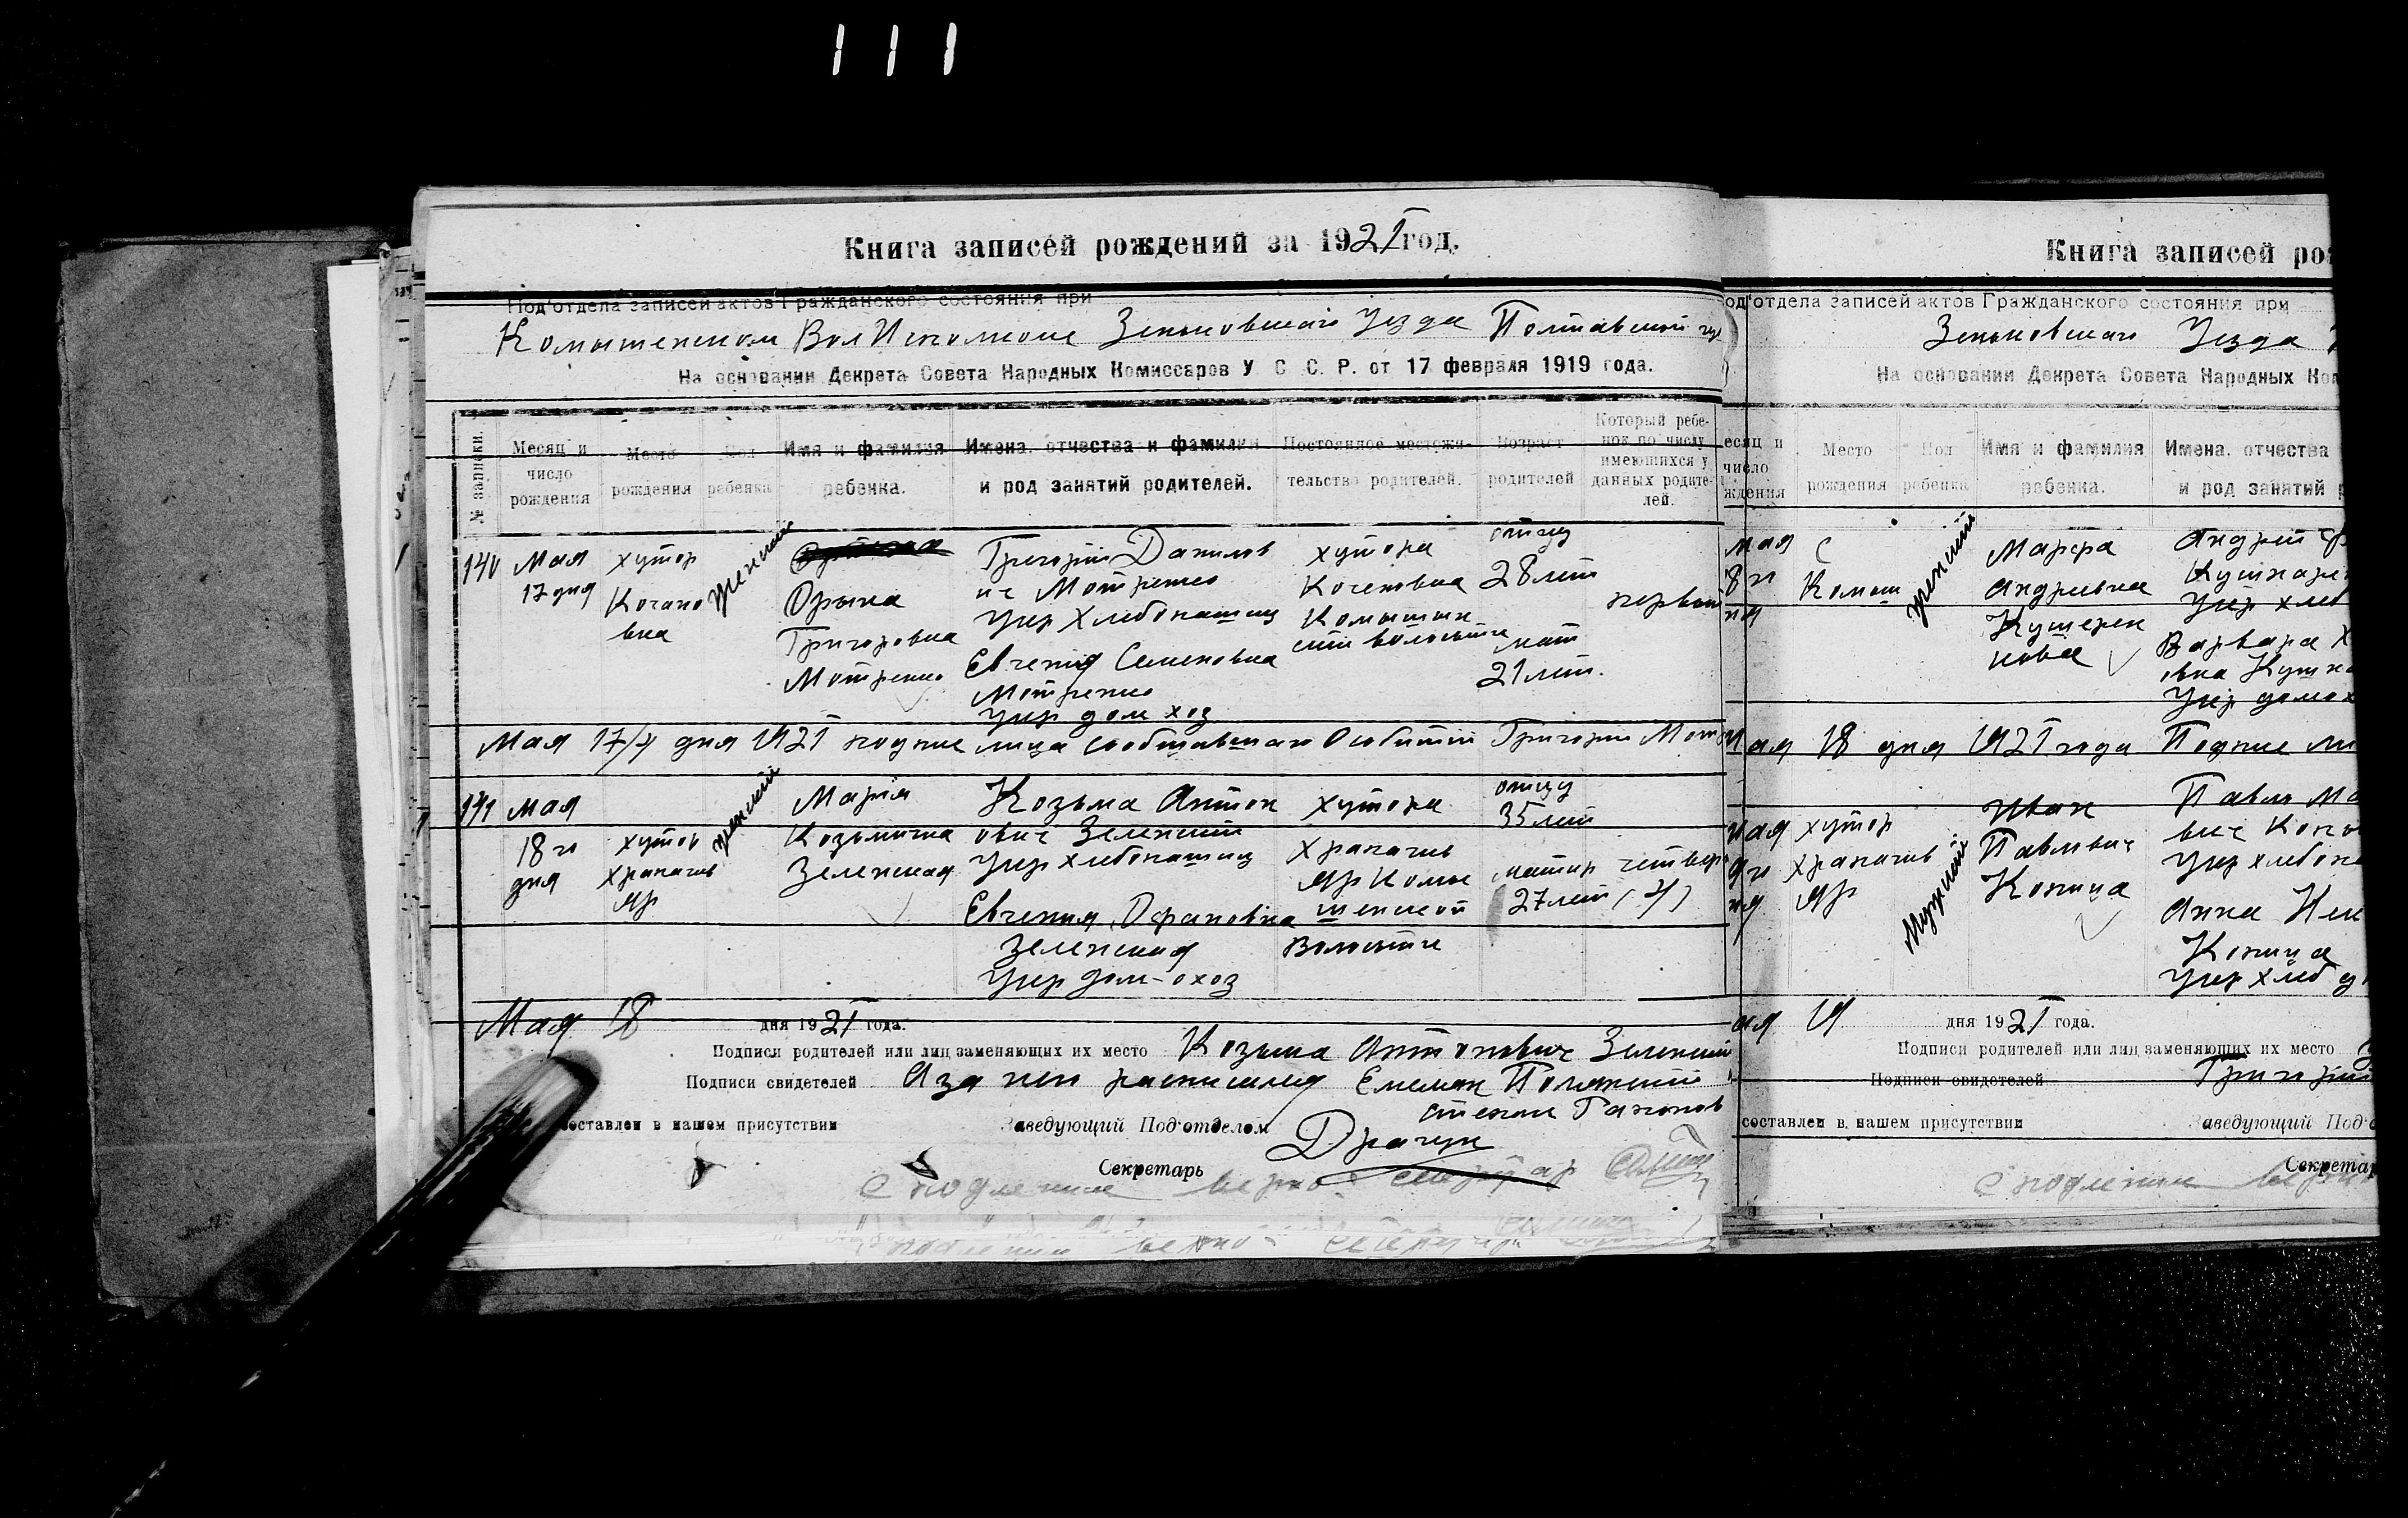 Книга записей рождений за 1921 год.
Под'отдела записей актов Гражданского состояния при
Комышенском ВолИсполкоме Зеньковского Уезда Полтавской
На основании Декрета Совета Народных Комиссаров У С. С. Р. от 17 февраля 1919 года.
№ записки.
Месяц и число рождения
Место рождения
Пол ребенка
Имя и фамилия ребенка.
Имена. отчества и фамилии и род занятий родителей.
Постоянное местожительство родителей.
Возраст родителей
Который ребенок по числу имеющихся у данных родителей.
140
Мая
17 дня
хутор
Кочано
вка
женский
Орына
Григоровна
Мотренко
Григорий Данилов
ич Мотренко
Укр Хлебопашец
Евгения Семеновна
Мотренко
Укр дом хоз
хутора
Коченовка
Комышан
ской волости
отцу
28 лет
мат
21 лет.
первый
Мая 17/4 дня 1921 подпис лица сообщавшаго О событии Григорий Мот
141
мая
18 го
дня
хутор
Храпачив
Яр
женский
Мария
Козьмична
Зеленская
Козьма Антон
ович Зеленский
Укр хлебопашец
Евгения Офановна
Зеленская
Укр дом-охоз
хутора
Храпачив
Яр Комы
шенской
Волости
отцу
35 лет
матир
27 лет
четвер
(4)
Мая 18 дня 1921 года.
Подписи родителей или лиц заменяющих их место Козьма Антонович Зеленский
Подписи свидетелей А за него расписался
составлен в нашем присутствии
Заведующий Под'отделом
Секретарь
С подлеником верно секретар
Книга записей ро
од'отдела записей актов Гражданского состояния при
Зеньковскаго Уезда
На основании Декрета Совета Народных Ком
есяц и
число
ждения
Место рождения
Пол ребенка
Имя и фамилия ребенка.
Имена. отчества
и род занятий
мая
8 го
ня
с
Комыш
женский
Марфа
Андреевна
Кушерен
кова
Андрей
Кушнаре
Укр хлеб
Варвара Х
овна Кушна
Укр домох
мая 18 дня 1921 года Подпис ли
мая
9 го
ня
хутор
Храпачив
Яр
мужский
Иван
Павлович
Копица
Павло Ма
вич Копы
Укр хлебопа
Анна
Копица
Укр хлеб д
ая 19 дня 1921 года.
Подписи родителей или лиц заменяющих их место
Подписи свидетелей Григорий
составлен в нашем присутствии
аведующий Под'о
Секретар
С подлеником верно